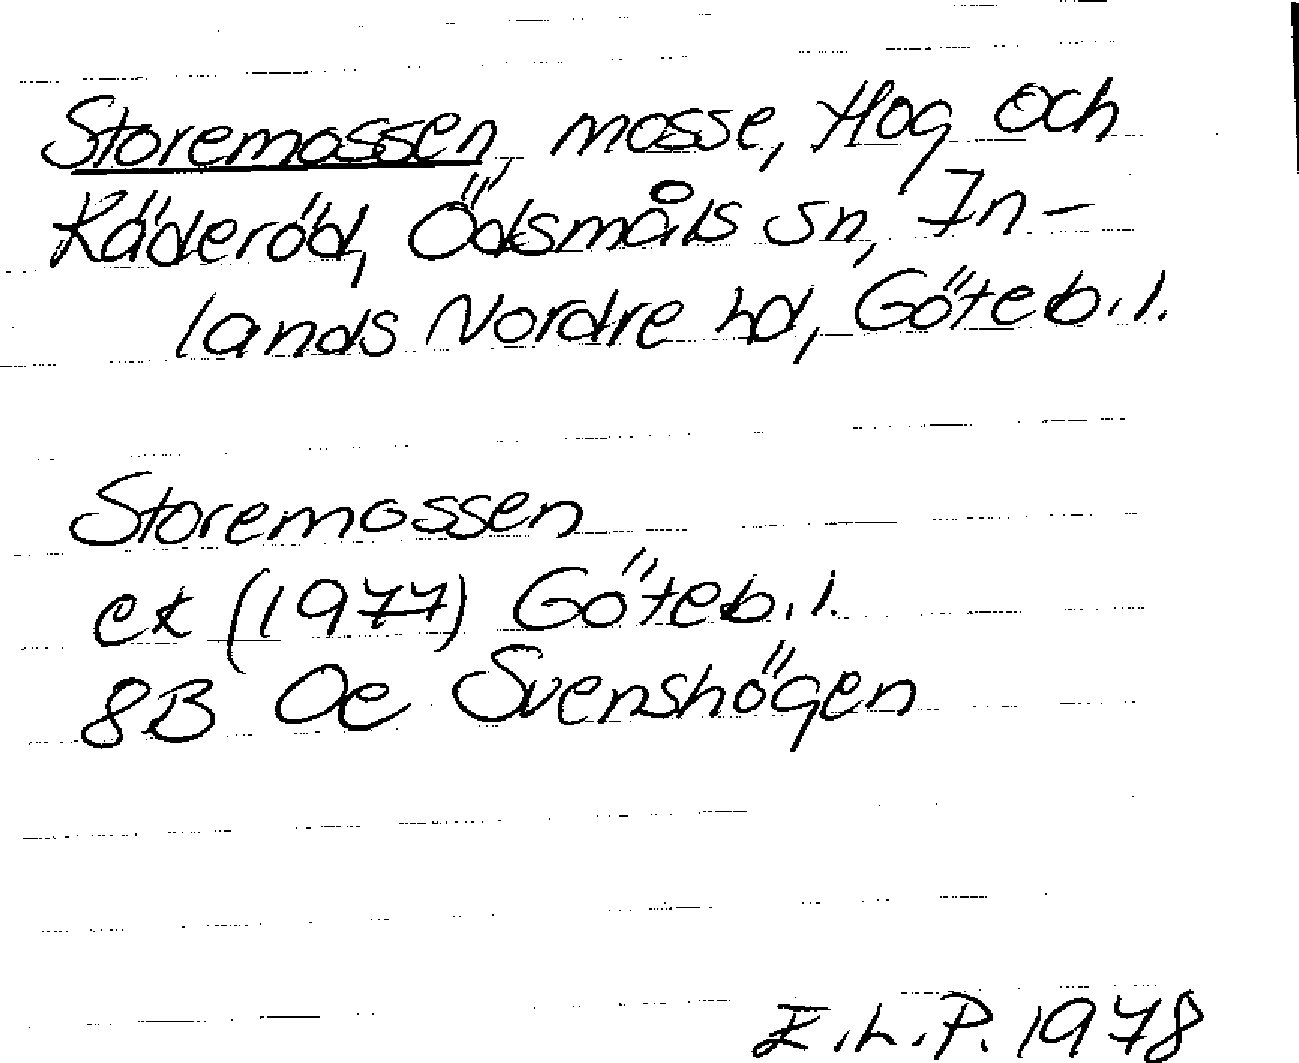 Storemossen, mosse, Hog och
Räderöd, Ödsmåls sn, In-
lands Nordre hd, Göteb.l.
Storemossen
ek (1977) Göteb.l.
8B Oe Svenshögen
E.L.P. 1978